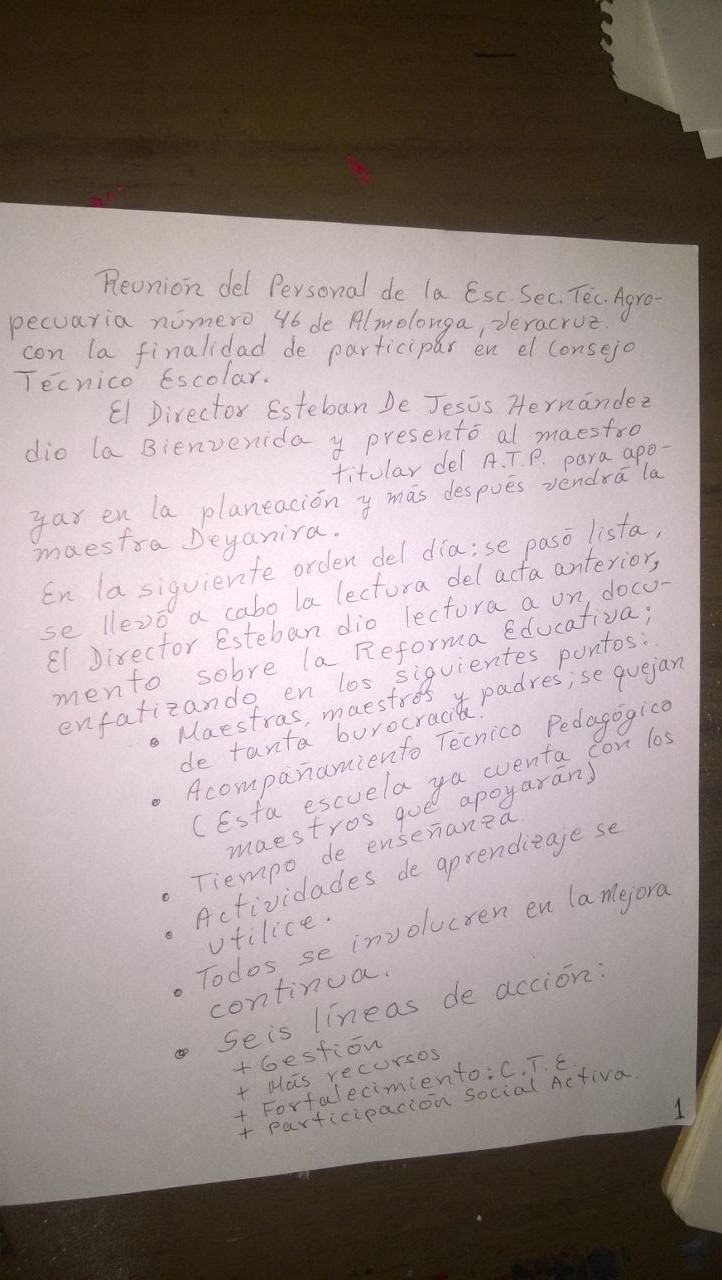 Reunión del Personal de la Esc. Sec. Téc. Agro-
pecuaria número 46 de Almolonga, Veracruz.
con la finalidad de participar en el Consejo
Técnico Escolar.
El Director Esteban De Jesús Hernández
dio la Bienvenida y presentó al maestro
titular del A.T.P. para apo-
yar en la planeación y más después vendrá la
maestra Deyanira.
En la siguiente orden del día: se pasó lista,
se llevó a cabo la lectura del acta anterior,
El Director Esteban dio lectura a un docu-
mento sobre la Reforma Educativa;
enfatizando en los siguientes puntos:
• Maestras, maestros y padres; se quejan
de tanta burocracia.
• Acompañamiento Técnico Pedagógico
(Esta escuela ya cuenta con los
maestros que apoyarán)
• Tiempo de enseñanza.
• Actividades de aprendizaje se
utilice.
• Todos se involucren en la mejora
continua.
• Seis líneas de acción:
+ Gestión
+ Más recursos
+ Fortalecimiento: C.T.E.
+ Participación Social Activa
1